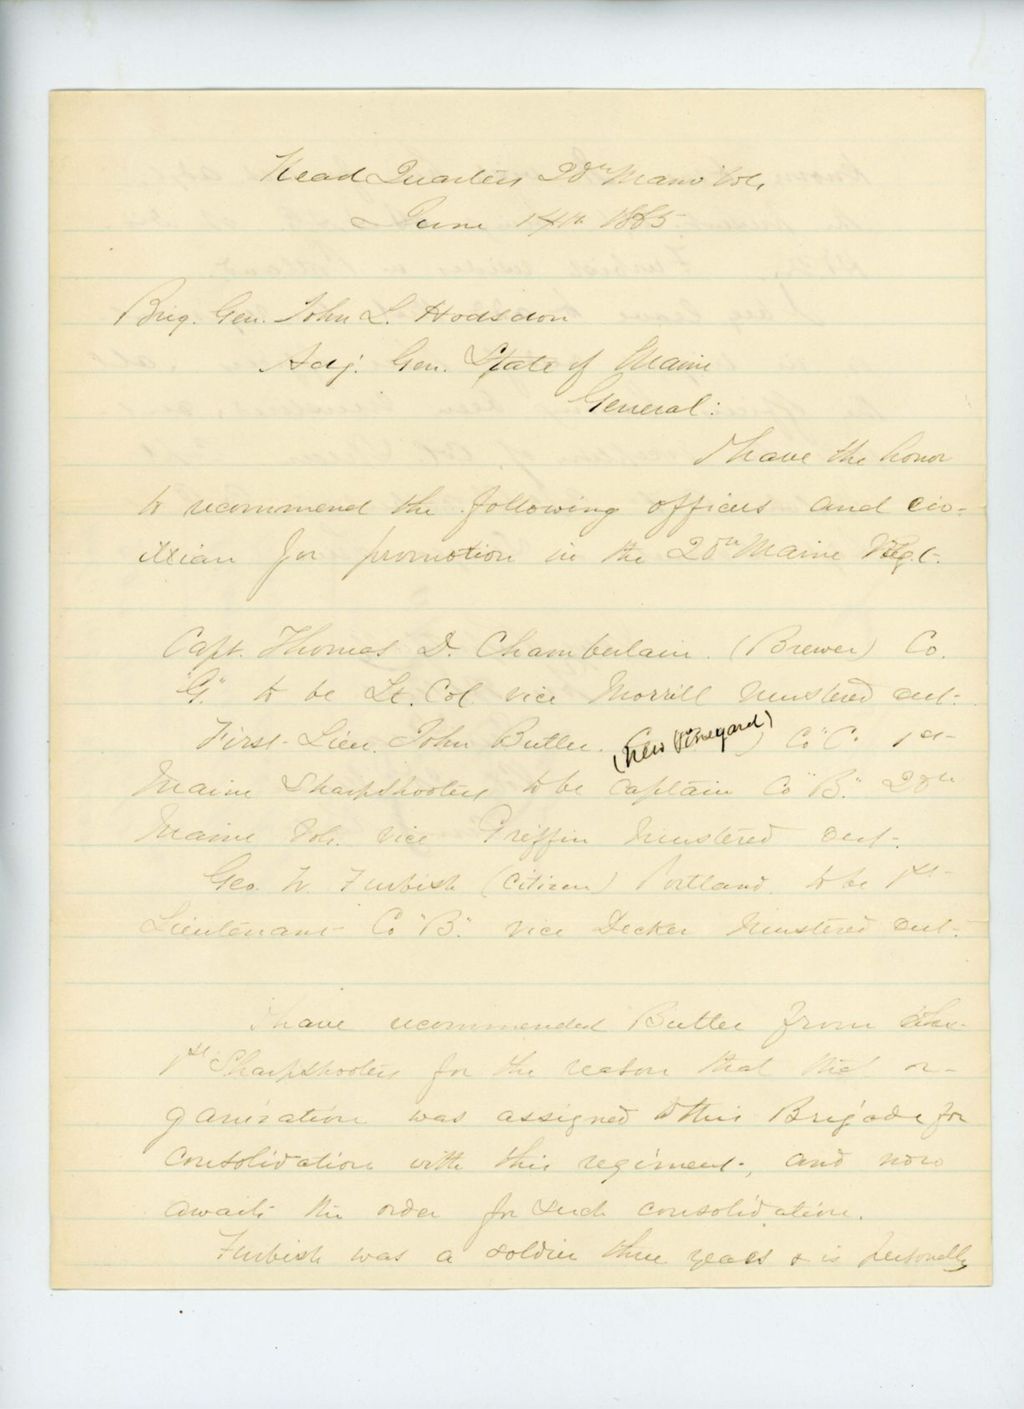 Head Quarters 20th Maine Vols,
June 14th 1865
Brig. Gen. John L. Hodsdon
Adj. Gen. State of Maine
General:
I have the honor
to recommend the following officers and civ-
ilian for promotion in the 20th Maine Regt.
Capt. Thomas D. Chamberlain. (Brewer) Co.
"G." to be Lt. Col vice Morrill mustered out.
First Lieu. John Butler. (New Vineyard) Co "C" 1st
Maine Sharpshooters to be Captain Co "B." 20th
Maine Vols. vice Griffin mustered out.
Geo. W. Furbish (Citizen) Portland. to be 1st
Lieutenant Co "B." vice Decker mustered out.
I have recommended Butler from the
1st Sharpshooters for the reason that that or-
ganization was assigned to this Brigade for
consolidation with this regiment, and now
awaits the order for such consolidation.
Furbish was a soldier three years & is personally